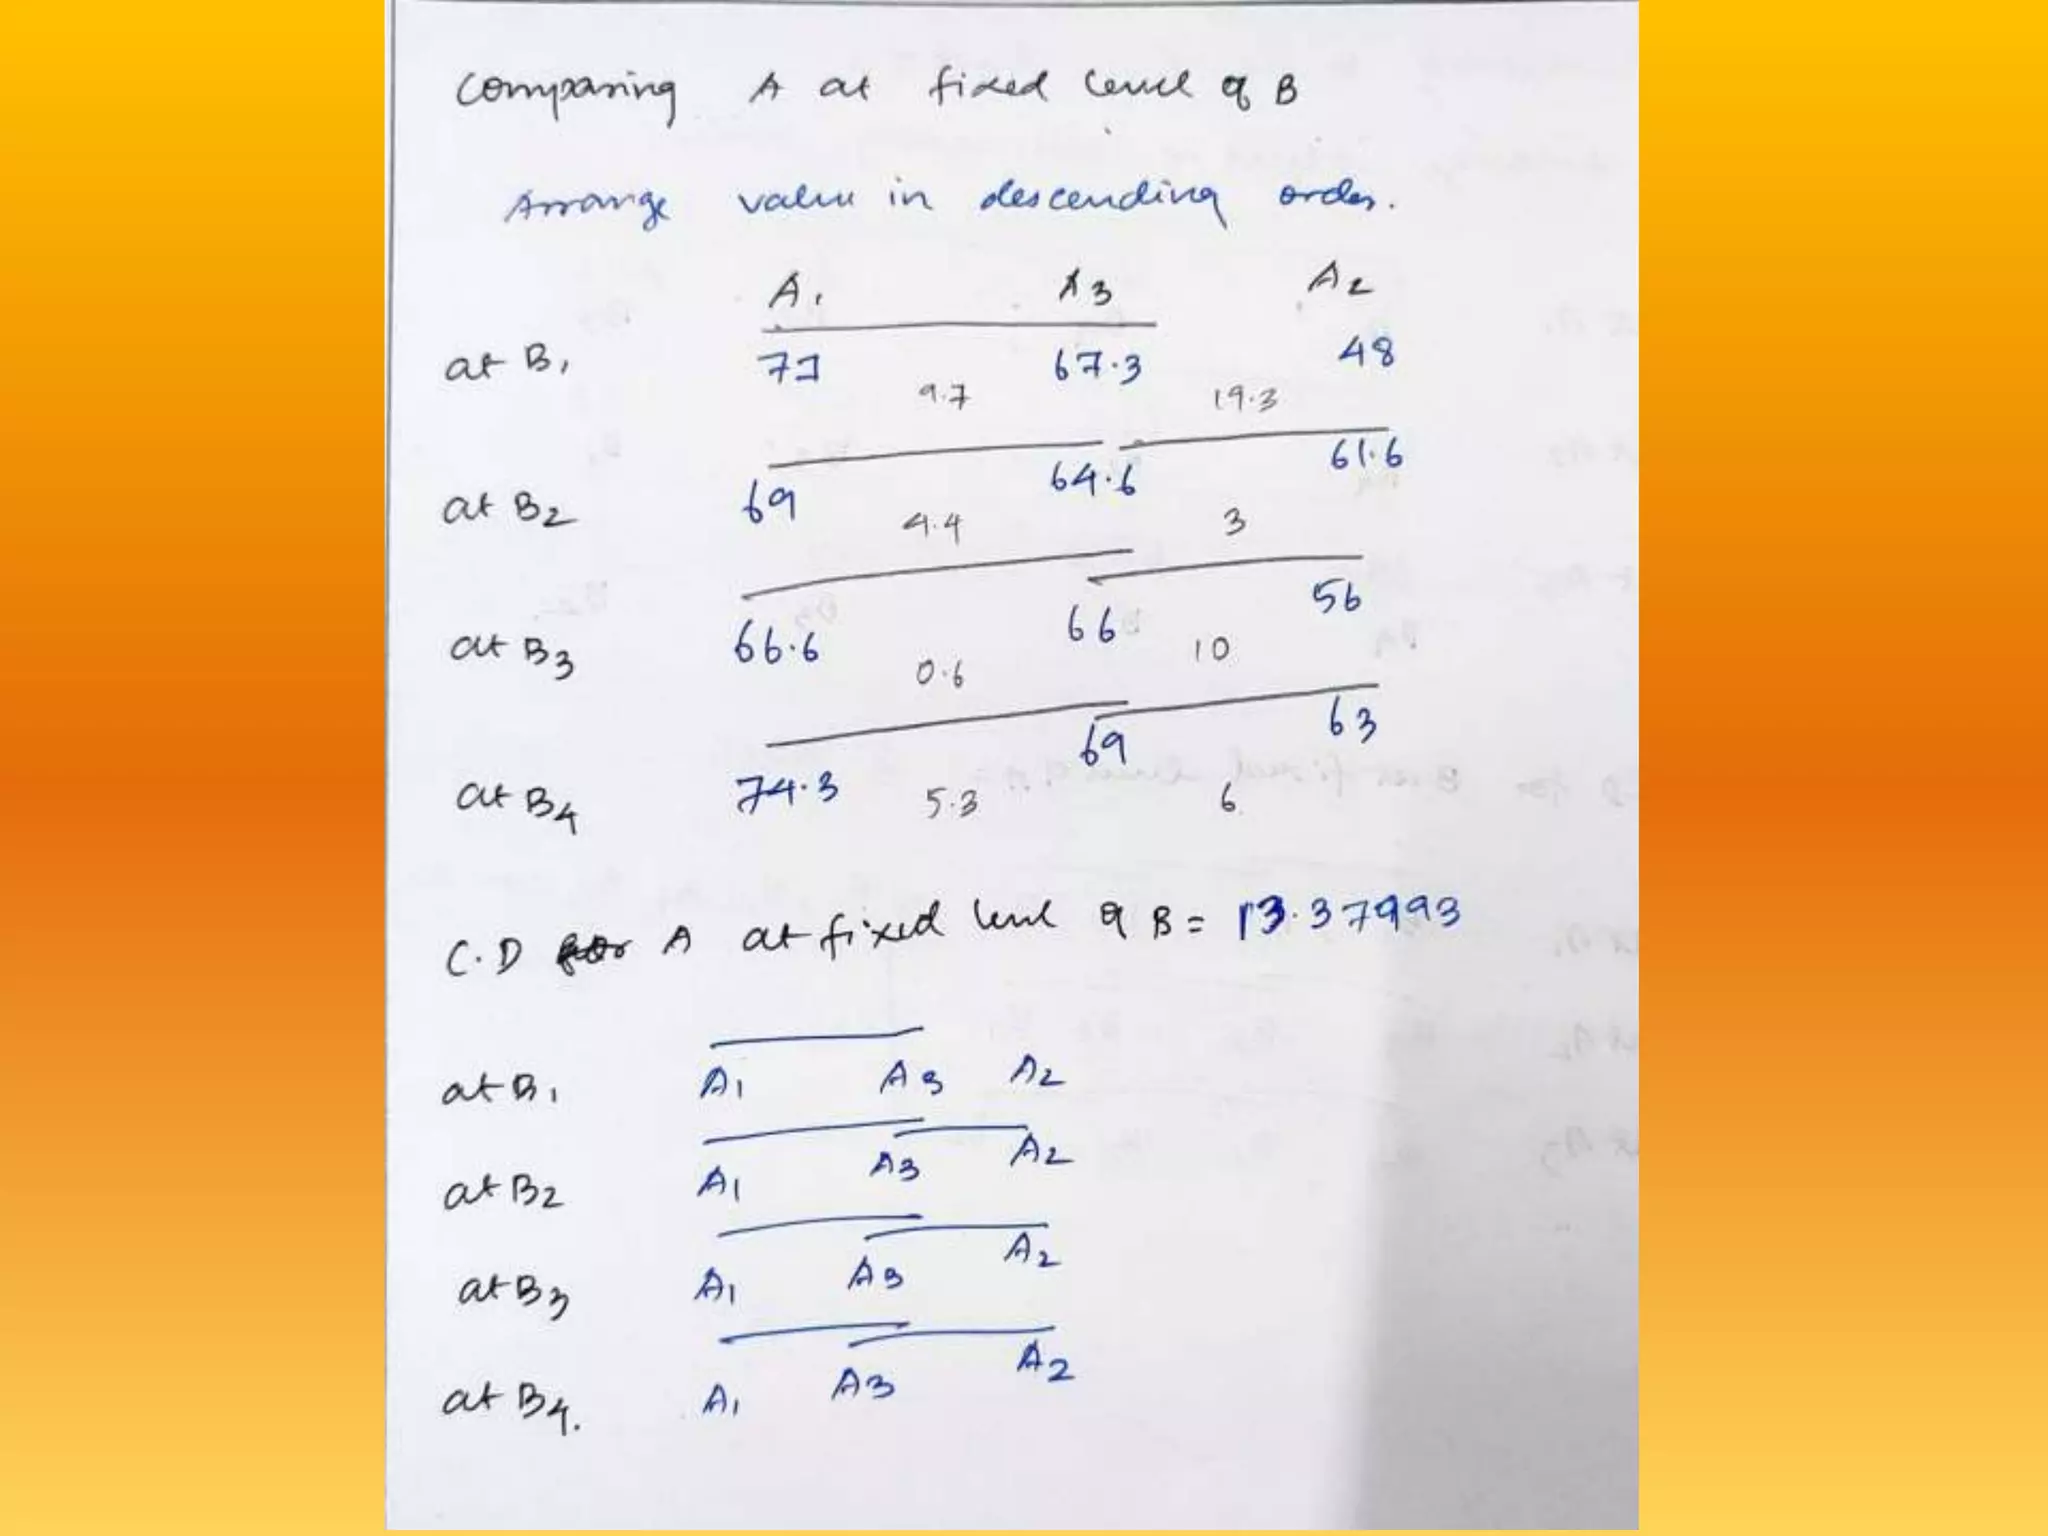 Comparing A at fixed level of B
Arrange value in descending order.
A1 A3 A2
at B1 77 67.3 48
9.7 19.3
at B2 69 64.6 61.6
4.4 3
at B3 66.6 66 56
0.6 10
at B4 74.3 69 63
5.3 6
C.D for A at fixed level of B = 13.37993
at B1 A1 A3 A2
at B2 A1 A3 A2
at B3 A1 A3 A2
at B4. A1 A3 A2